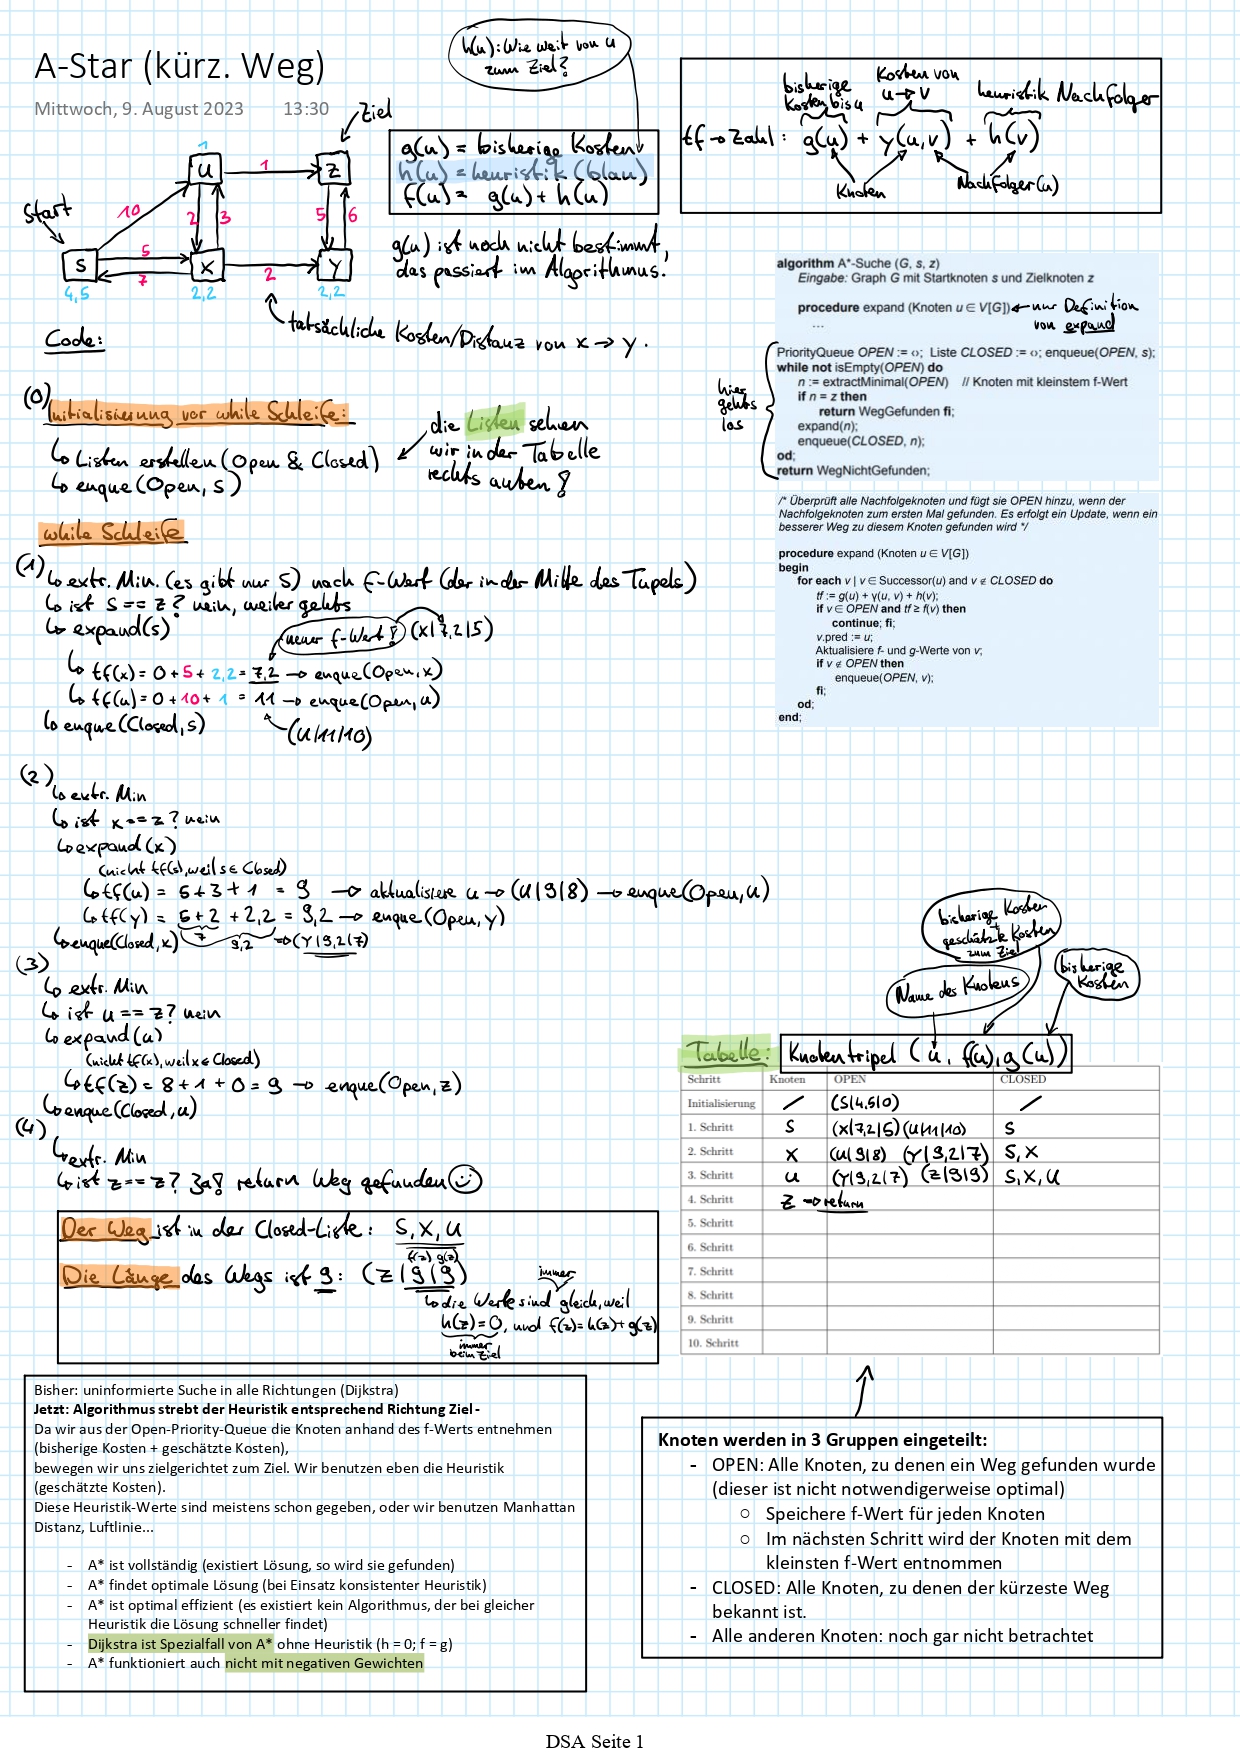 A-Star (kürz. Weg)
Mittwoch, 9. August 2023 13:30
h(u): Wie weit von u
zum Ziel?
Ziel
Start
1
u
1
z
10
2
3
5
6
s
5
7
x
2
y
4,5
2,2
2,2
g(u) = bisherige Kosten
h(u) = heuristik (blau)
f(u) = g(u) + h(u)
g(u) ist noch nicht bestimmt,
das passiert im Algorithmus.
tatsächliche Kosten/Distanz von x → y.
bisherige
Kosten bis u
Kosten von
u → v
heuristik Nachfolger
tf → Zahl: g(u) + γ(u,v) + h(v)
Knoten
Nachfolger(u)
algorithm A*-Suche (G, s, z)
Eingabe: Graph G mit Startknoten s und Zielknoten z
procedure expand (Knoten u ∈ V[G])
...
← nur Definition
von expand
hier
gehts
los
PriorityQueue OPEN := ‹›; Liste CLOSED := ‹›; enqueue(OPEN, s);
while not isEmpty(OPEN) do
n := extractMinimal(OPEN) // Knoten mit kleinstem f-Wert
if n = z then
return WegGefunden fi;
expand(n);
enqueue(CLOSED, n);
od;
return WegNichtGefunden;
/* Überprüft alle Nachfolgeknoten und fügt sie OPEN hinzu, wenn der
Nachfolgeknoten zum ersten Mal gefunden. Es erfolgt ein Update, wenn ein
besserer Weg zu diesem Knoten gefunden wird */
procedure expand (Knoten u ∈ V[G])
begin
for each v | v ∈ Successor(u) and v ∉ CLOSED do
tf := g(u) + γ(u, v) + h(v);
if v ∈ OPEN and tf ≥ f(v) then
continue; fi;
v.pred := u;
Aktualisiere f- und g-Werte von v;
if v ∉ OPEN then
enqueue(OPEN, v);
fi;
od;
end;
Code:
(0)
Initialisierung vor while Schleife:
↳ Listen erstellen (Open & Closed)
↳ enque(Open, s)
die Listen sehen
wir in der Tabelle
rechts außen!
while Schleife
(1)
↳ extr. Min. (es gibt nur S) nach f-Wert (der in der Mitte des Tupels)
↳ ist s == z? nein, weiter gehts
↳ expand(s)
neuer f-Wert! (x|7,2|5)
↳ tf(x) = 0 + 5 + 2,2 = 7,2 → enque(Open, x)
↳ tf(u) = 0 + 10 + 1 = 11 → enque(Open, u)
↳ enque(Closed, s)
(u|11|10)
(2)
↳ extr. Min
↳ ist x == z? nein
↳ expand(x)
(nicht tf(s), weil s ∈ Closed)
↳ tf(u) = 5 + 3 + 1 = 9 → aktualisiere u → (u|9|8) → enque(Open, u)
↳ tf(y) = 5 + 2 + 2,2 = 9,2 → enque(Open, y)
↳ enque(Closed, x) 7 9,2 → (y|9,2|7)
(3)
↳ extr. Min
↳ ist u == z? nein
↳ expand(u)
(nicht tf(x), weil x ∈ Closed)
↳ tf(z) = 8 + 1 + 0 = 9 → enque(Open, z)
↳ enque(Closed, u)
(4)
↳ extr. Min
↳ ist z == z? Ja! return Weg gefunden
Der Weg ist in der Closed-Liste: S, X, U
f(z) g(z)
Die Länge des Wegs ist 9: (z|9|9)
immer
↳ die Werte sind gleich, weil
h(z)=0, und f(z)=h(z)+g(z)
immer
beim Ziel
bisherige Kosten
+
geschätzte Kosten
zum Ziel
Name des Knotens
bisherige
Kosten
Tabelle: Knotentripel (u, f(u), g(u))
Schritt Knoten OPEN CLOSED
Initialisierung / (S|4,5|0) /
1. Schritt S (x|7,2|5)(u|11|10) S
2. Schritt X (u|9|8) (y|9,2|7) S, X
3. Schritt u (y|9,2|7) (z|9|9) S, X, U
4. Schritt Z → return
5. Schritt
6. Schritt
7. Schritt
8. Schritt
9. Schritt
10. Schritt
Bisher: uninformierte Suche in alle Richtungen (Dijkstra)
Jetzt: Algorithmus strebt der Heuristik entsprechend Richtung Ziel -
Da wir aus der Open-Priority-Queue die Knoten anhand des f-Werts entnehmen
(bisherige Kosten + geschätzte Kosten),
bewegen wir uns zielgerichtet zum Ziel. Wir benutzen eben die Heuristik
(geschätzte Kosten).
Diese Heuristik-Werte sind meistens schon gegeben, oder wir benutzen Manhattan
Distanz, Luftlinie...
- A* ist vollständig (existiert Lösung, so wird sie gefunden)
- A* findet optimale Lösung (bei Einsatz konsistenter Heuristik)
- A* ist optimal effizient (es existiert kein Algorithmus, der bei gleicher
Heuristik die Lösung schneller findet)
- Dijkstra ist Spezialfall von A* ohne Heuristik (h = 0; f = g)
- A* funktioniert auch nicht mit negativen Gewichten
Knoten werden in 3 Gruppen eingeteilt:
- OPEN: Alle Knoten, zu denen ein Weg gefunden wurde
(dieser ist nicht notwendigerweise optimal)
○ Speichere f-Wert für jeden Knoten
○ Im nächsten Schritt wird der Knoten mit dem
kleinsten f-Wert entnommen
- CLOSED: Alle Knoten, zu denen der kürzeste Weg
bekannt ist.
- Alle anderen Knoten: noch gar nicht betrachtet
DSA Seite 1